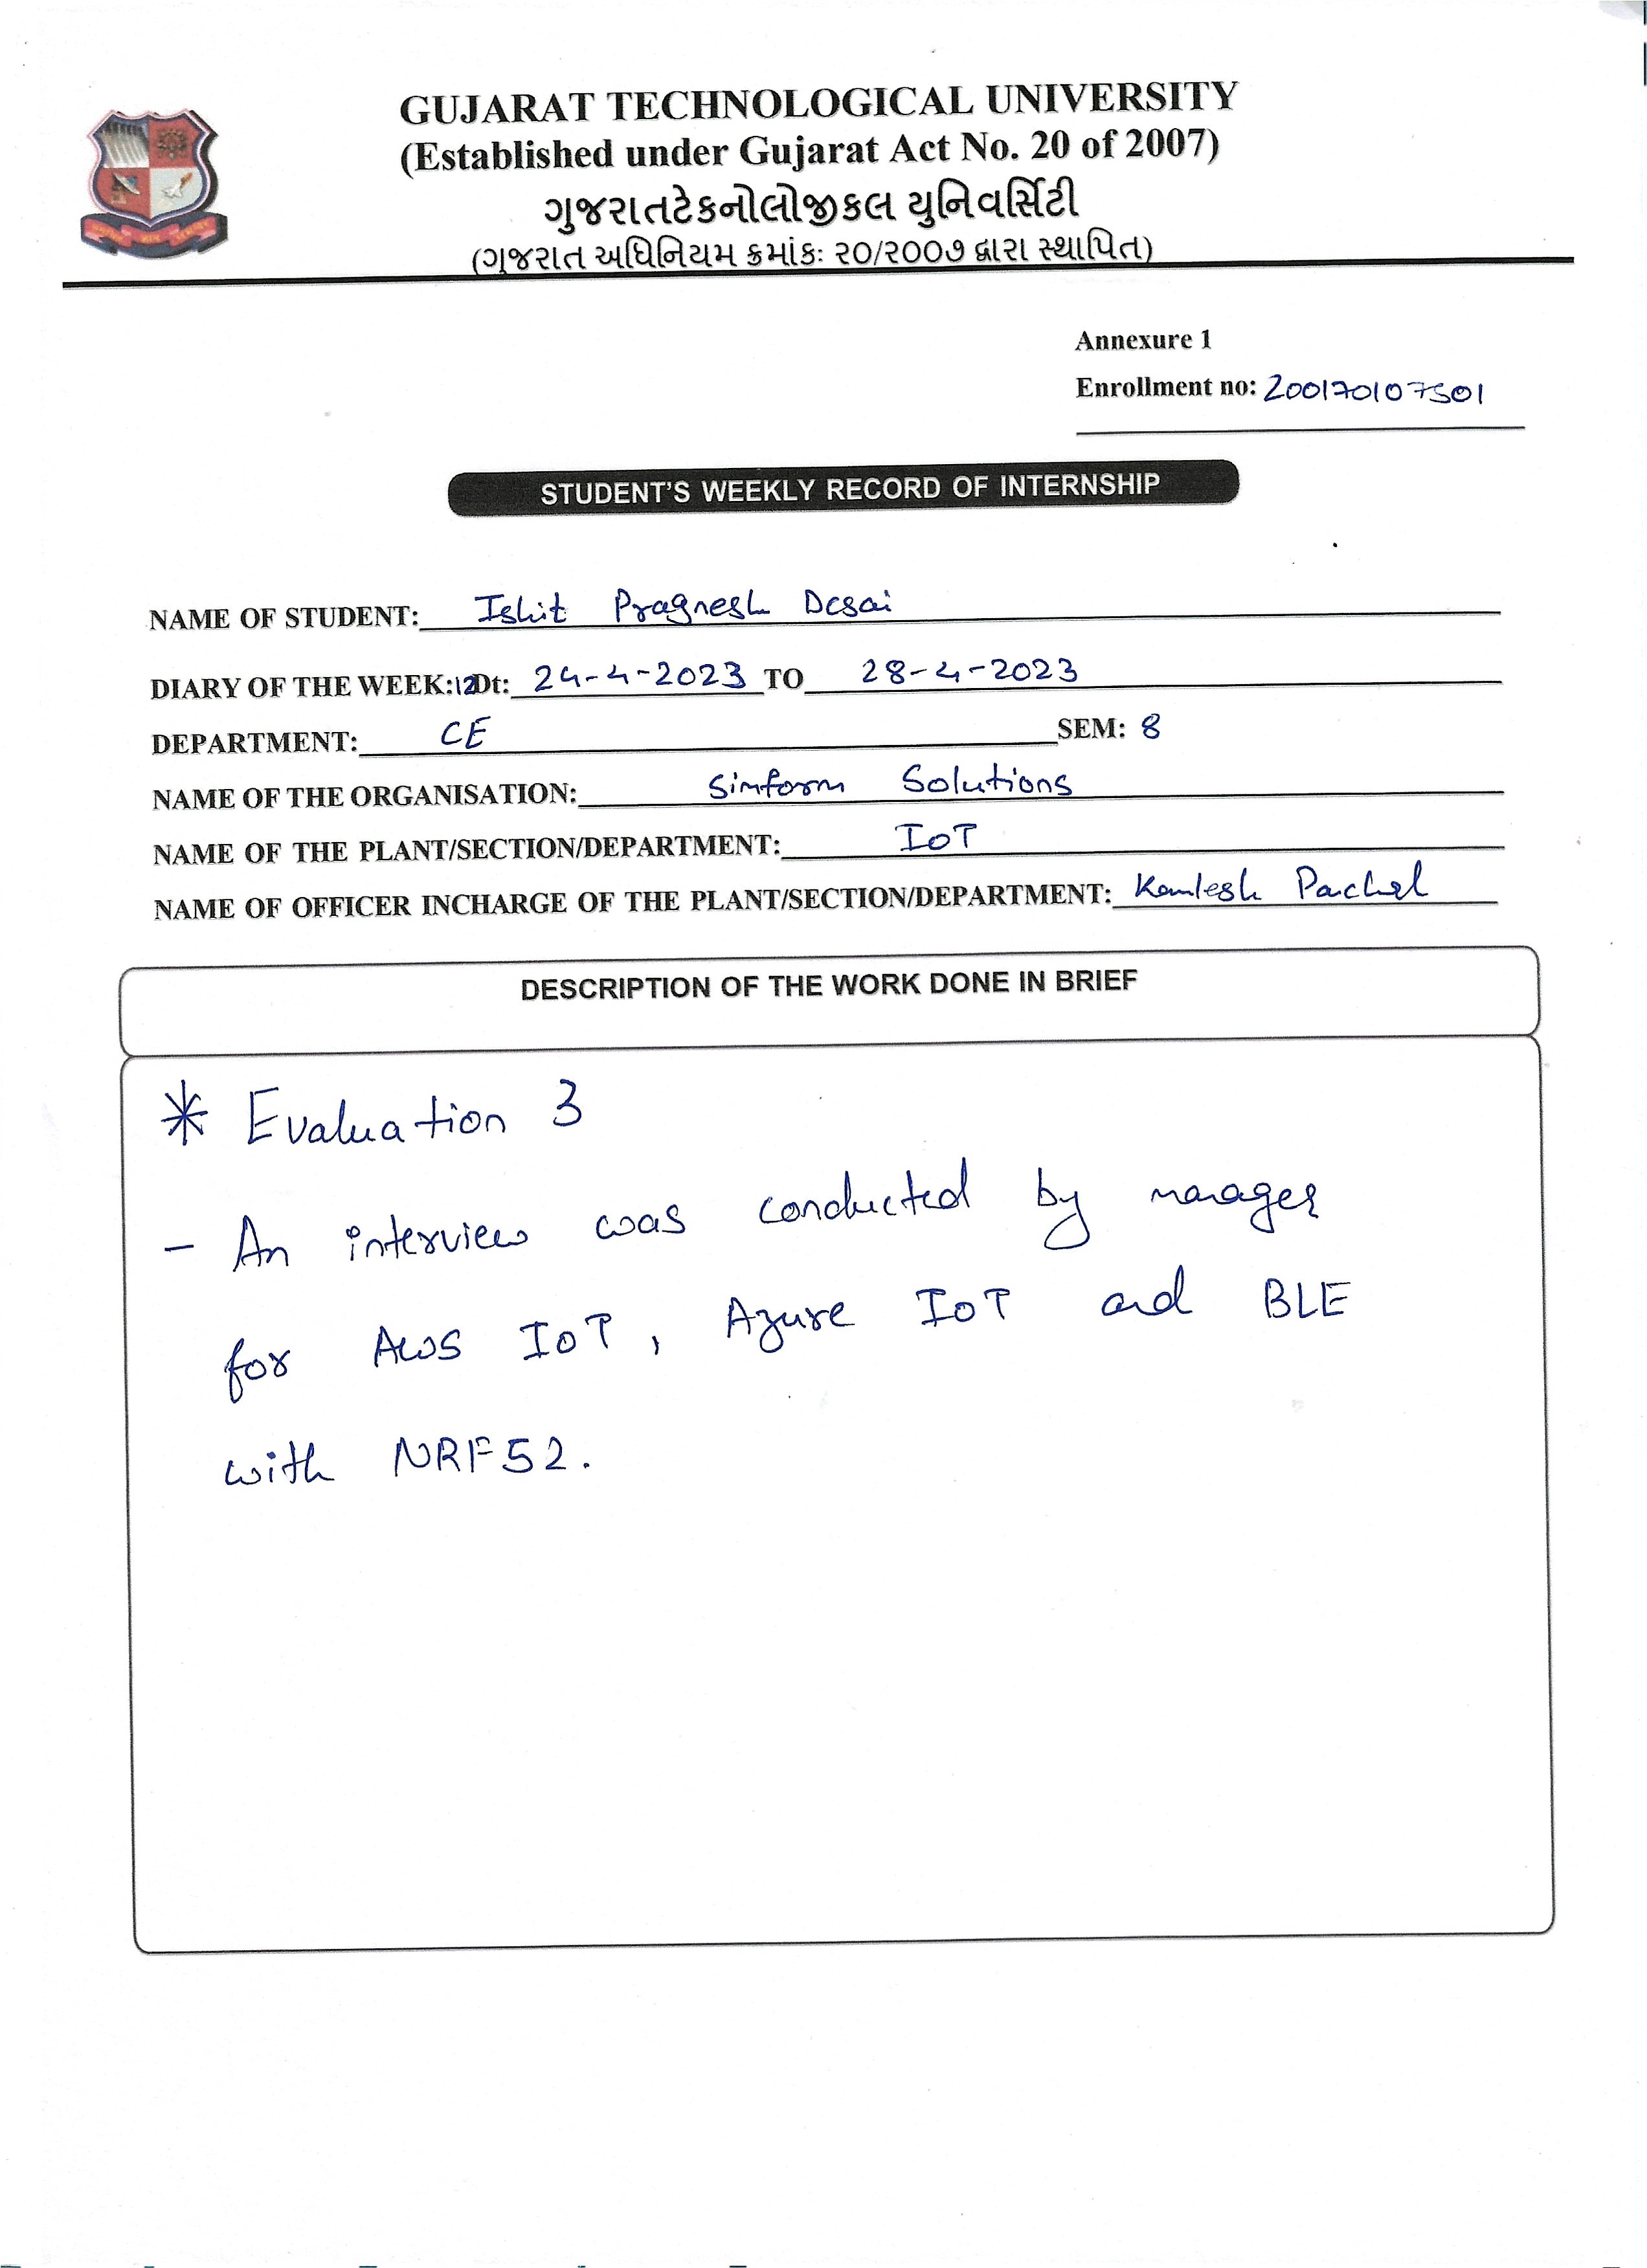 GUJARAT TECHNOLOGICAL UNIVERSITY
(Established under Gujarat Act No. 20 of 2007)
ગુજરાતટેકનોલોજીકલ યુનિવર્સિટી
(ગુજરાત અધિનિયમ ક્રમાંકઃ ૨૦/૨૦૦૭ દ્વારા સ્થાપિત)
Annexure 1
Enrollment no: 200170107501
STUDENT'S WEEKLY RECORD OF INTERNSHIP
NAME OF STUDENT: Ishit Pragnesh Desai
DIARY OF THE WEEK:12Dt: 24-4-2023 TO 28-4-2023
DEPARTMENT: CE SEM: 8
NAME OF THE ORGANISATION: Simform Solutions
NAME OF THE PLANT/SECTION/DEPARTMENT: IoT
NAME OF OFFICER INCHARGE OF THE PLANT/SECTION/DEPARTMENT: Kamlesh
DESCRIPTION OF THE WORK DONE IN BRIEF
* Evaluation 3
- An interview was conducted by manager
for AWS IoT, Azure IoT and BLE
with NRF52.